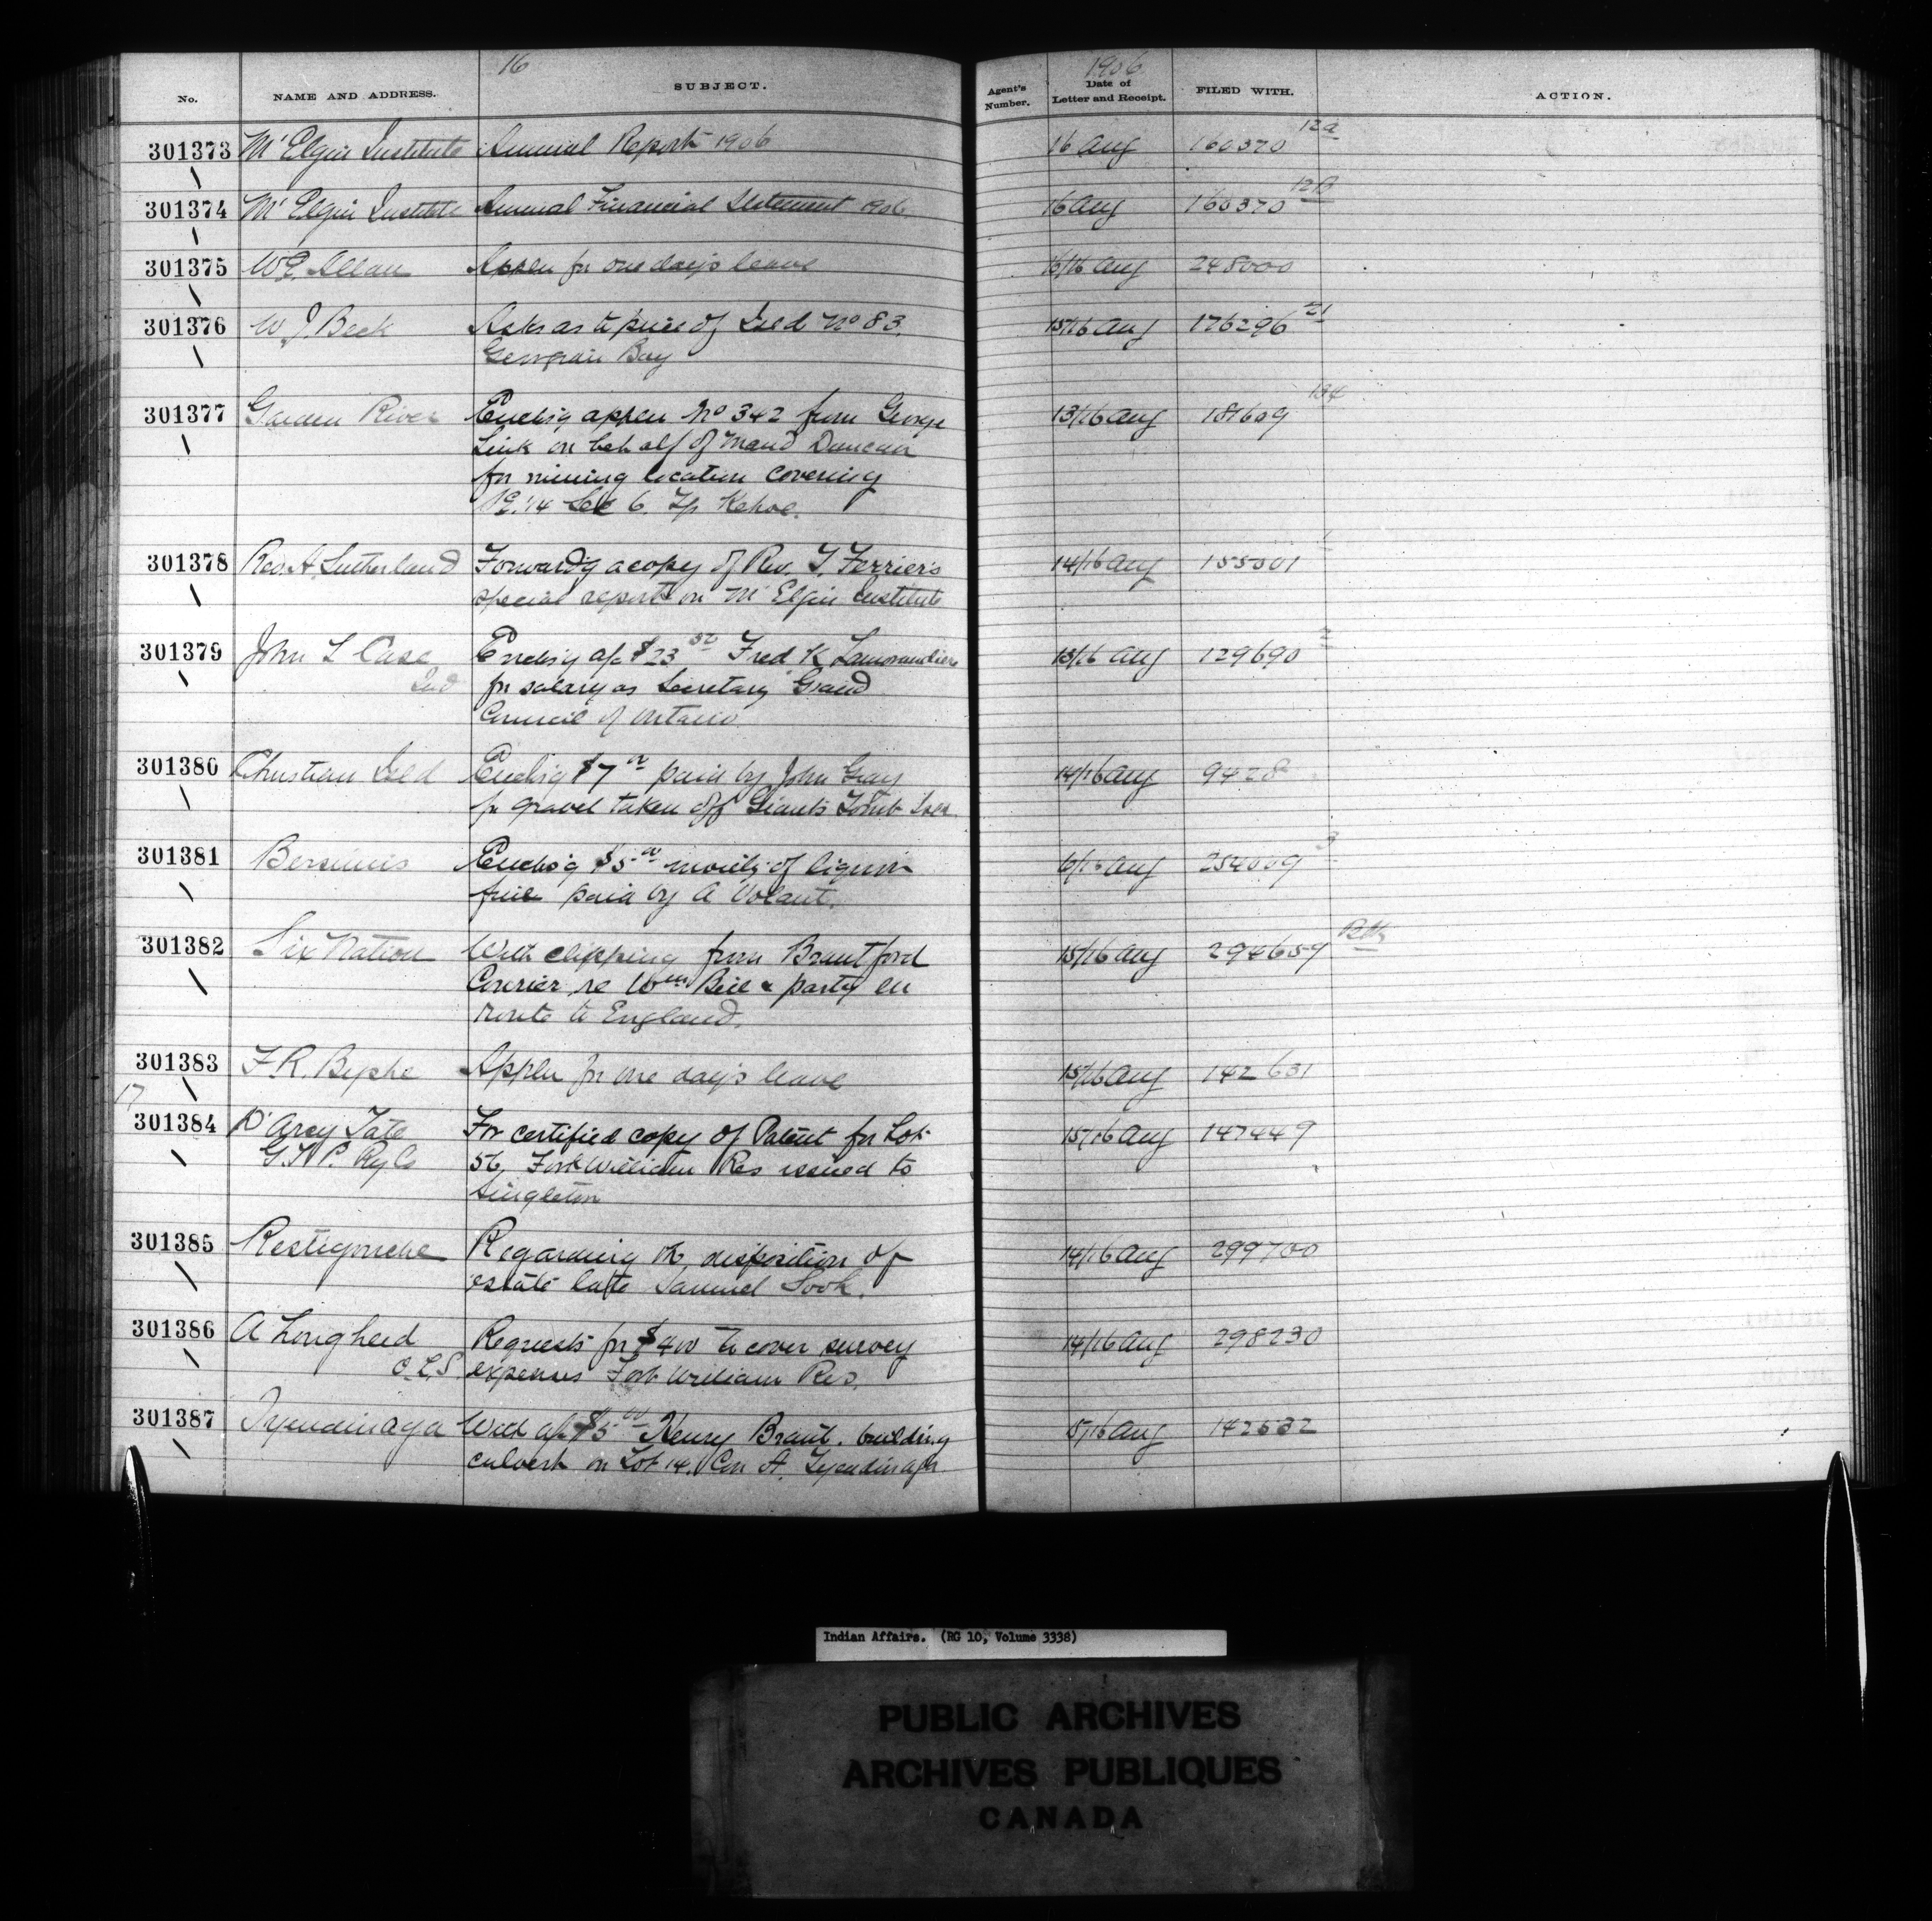 16
1906
No. NAME AND ADDRESS. SUBJECT. Agent's Number. Date of Letter and Receipt. FILED WITH. ACTION.
301373 Mt Elgin Institute Annual Report 1906 16 Aug 160370 12a
301374 Mt Elgin Institute Annual Financial Statement 1906 16 Aug 160370 12B
301375 W E. Allan Appln for one day's leave 16/16 Aug 248000
301376 W J. Beck Asks as to price of Isld No 83. 15/16 Aug 176296 21
Georgian Bay
301377 Garden River Enclos'g appln No 342 from George 13/16 Aug 181609 134
Link on behalf of Maud Duncan
for mining location covering
1/4 Sec 6. Tp Kehoe.
301378 Rev. A. Sutherland Forward'g a copy of Rev. T. Ferrier's 14/16 Aug 155501 1
special report on Mt Elgin Institute
301379 John L Case Enclos'g a/c $23 50 Fred K Lamorandiere 15/16 Aug 129690 2
for salary as Secretary Grand
Council of Ontario
301380 Christian Isld Enclos'g $7 00 paid by John Gray 14/16 Aug 9428
for gravel taken off Giants Tomb Isld
301381 Bersimis Enclos'g $5 00 moiety of liquor 6/16 Aug 254009 3
fine paid by A Volant.
301382 Six Nation With clipping from Brantford 15/16 Aug 294659
Courier re Wm Bill & party en
route to England.
301383 F. R. Byshe Appln for one day's leave 15/16 Aug 142631
17
301384 D'Arcy Tate For certified copy of Patent for Lot 15/16 Aug 147449
G. T. P. Ry Co 56, Fort William Res issued to
Singleton
301385 Restigouche Regarding the disposition of 14/16 Aug 299700
estate late Samuel Sook.
301386 A Lougheed Requests for $400 to cover survey 14/16 Aug 298230
O. L. S expenses Fort William Res.
301387 Tyendinaga With a/c $5 00 Henry Brant. building 15/16 Aug 142532
culvert on Lot 14. Con A. Tyendinaga
Indian Affairs. (RG 10, Volume 3338)
PUBLIC ARCHIVES
ARCHIVES PUBLIQUES
CANADA